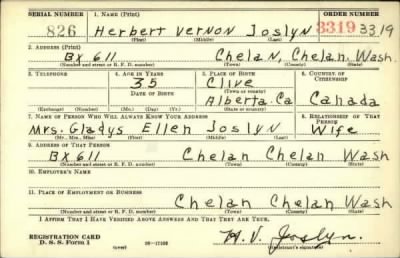 SERIAL NUMBER 1. NAME (Print) ORDER NUMBER
826 Herbert Vernon Joslyn 3319 3319
(First) (Middle) (Last)
2. ADDRESS (Print)
Bx 611 Chelan, Chelan, Wash.
(Number and street or R. F. D. number) (Town) (County) (State)
3. TELEPHONE 4. AGE IN YEARS 5. PLACE OF BIRTH 6. COUNTRY OF CITIZENSHIP
35 Clive
DATE OF BIRTH (Town or county)
Alberta. Ca Canada
(Exchange) (Number) (Mo.) (Day) (Yr.) (State or country)
7. NAME OF PERSON WHO WILL ALWAYS KNOW YOUR ADDRESS 8. RELATIONSHIP OF THAT PERSON
Mrs. Gladys Ellen Joslyn Wife
(Mr., Mrs., Miss) (First) (Middle) (Last)
9. ADDRESS OF THAT PERSON
Bx 611 Chelan Chelan Wash
(Number and street or R. F. D. number) (Town) (County) (State)
10. EMPLOYER'S NAME
11. PLACE OF EMPLOYMENT OR BUSINESS
Chelan Chelan Wash
(Number and street or R. F. D. number) (Town) (County) (State)
I AFFIRM THAT I HAVE VERIFIED ABOVE ANSWERS AND THAT THEY ARE TRUE.
REGISTRATION CARD
D. S. S. Form 1 (over) H. V. Joslyn.
(Registrant's signature)